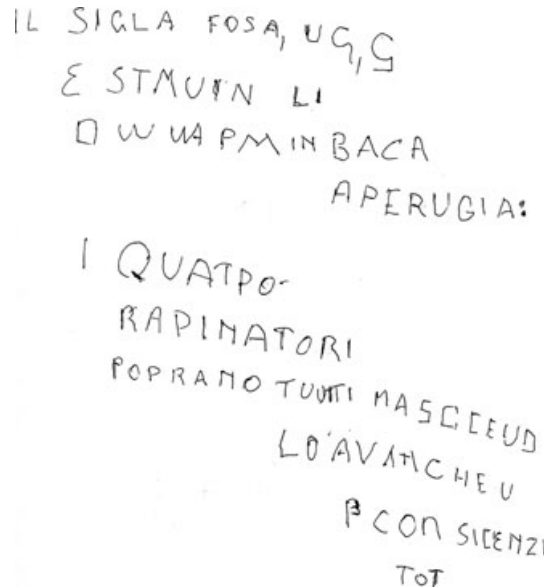 IL SIGLA FOSA, UG, G
E STMUIN LI
IN BACA
APERUGIA:
I QUATPO-
RAPINATORI
POPRANO TUUTTI
LO'AVANCHE U
CON SICENZI
TOT